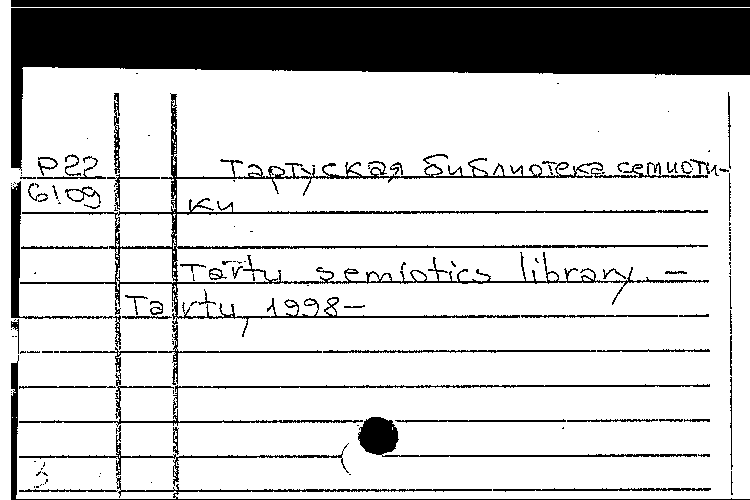 P22 Тартуская библиотека семиоти-
6109 ки
Tartu semiotics library. –
Tartu, 1998–
3